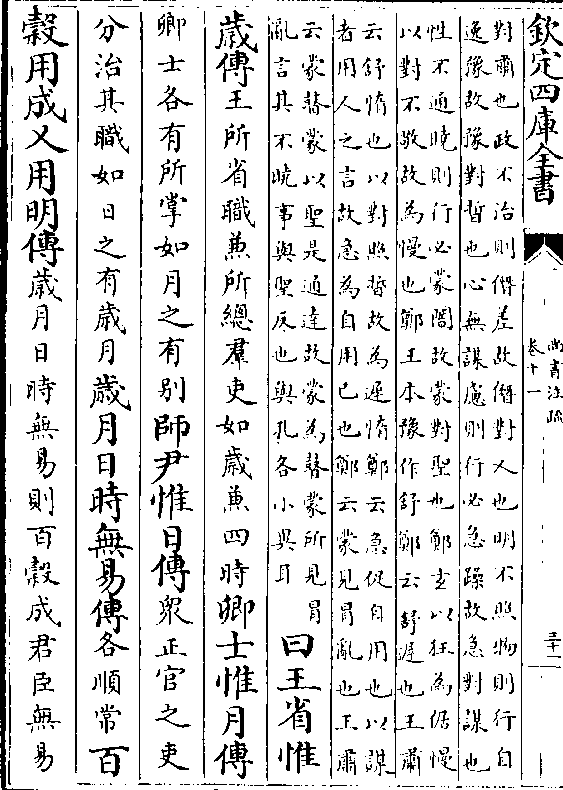 欽定四庫全書
尚書注疏
卷十一
三十二
對肅也政不治則僭差故僭對乂也明不照物則行自
逸豫故豫對晢也心無謀慮則行必急躁故急對謀也
性不通曉則行必蒙闇故蒙對聖也鄭玄以狂為倨慢
以對不敬故為慢也鄭王本豫作舒鄭云舒遲也王肅
云舒惰也以對照晢故為遲惰鄭云急促自用也以謀
者用人之言故急為自用已也鄭云蒙見冒亂也王肅
云蒙瞽蒙以聖是通達故蒙為瞽蒙所見冒
亂言其不曉事與聖反也與孔各小異耳
曰王省惟
歲傳王所省職兼所總羣吏如歲兼四時卿士惟月傳
卿士各有所掌如月之有別師尹惟日傳衆正官之吏
分治其職如日之有歲月歲月日時無易傳各順常百
穀用成乂用明傳歲月日時無易則百穀成君臣無易